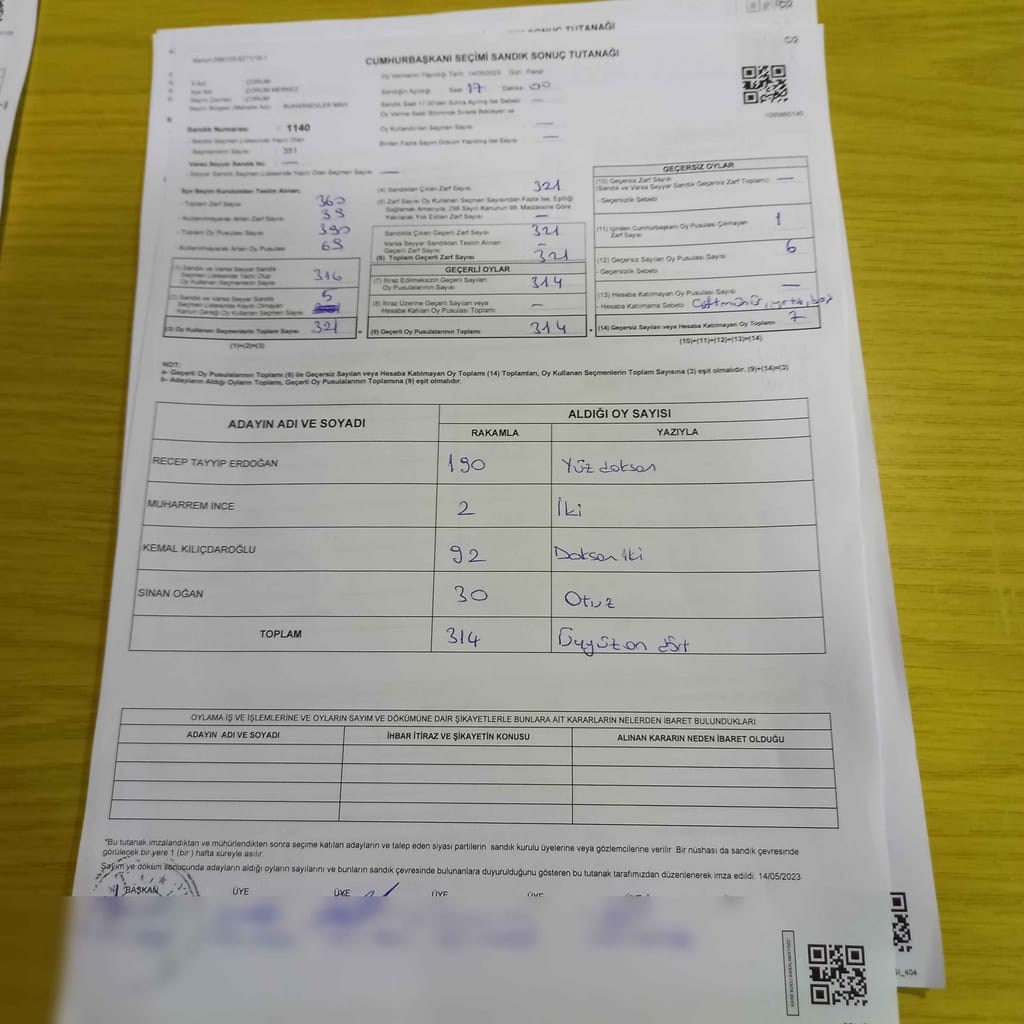 SONUÇ TUTANAĞI
C/2
CUMHURBAŞKANI SEÇİMİ SANDIK SONUÇ TUTANAĞI
Oy Vermenin Yapıldığı Tarih: 14/05/2023 Gün: Pazar
ÇORUM
ÇORUM MERKEZ
ÇORUM
Sandığın Açıldığı Saat 17 Dakika 00
Sandık Numarası 1140
351
Varsa Seyyar Sandık No
İlçe Seçim Kurulundan Teslim Alınan;
- Toplam Zarf Sayısı 360
- Kullanılmayarak Artan Zarf Sayısı 39
- Toplam Oy Pusulası Sayısı 390
- Kullanılmayarak Artan Oy Pusulası 69
(1) Sandık ve Varsa Seyyar Sandık Seçmen Listesinde Yazılı Olup Oy Kullanan Seçmenlerin Sayısı 316
(2) Sandık ve Varsa Seyyar Sandık Seçmen Listesinde Kayıtlı Olmayan Kanun Gereği Oy Kullanan Seçmenlerin Sayısı 5
(3) Oy Kullanan Seçmenlerin Toplam Sayısı 321
(1)+(2)=(3)
(4) Sandıktan Çıkan Zarf Sayısı 321
(5) Zarf Sayısı Oy Kullanan Seçmen Sayısından Fazla İse, Eşitliği
Sağlamak Amacıyla, 298 Sayılı Kanunun 98. Maddesine Göre
Yakılarak Yok Edilen Zarf Sayısı –
Sandıkta Çıkan Geçerli Zarf Sayısı 321
Varsa Seyyar Sandıktan Teslim Alınan
Geçerli Zarf Sayısı –
(6) Toplam Geçerli Zarf Sayısı 321
GEÇERLİ OYLAR
(7) İtiraz Edilmeksizin Geçerli Sayılan
Oy Pusulalarının Sayısı 314
(8) İtiraz Üzerine Geçerli Sayılan veya
Hesaba Katılan Oy Pusulası Toplamı –
(9) Geçerli Oy Pusulalarının Toplamı 314
GEÇERSİZ OYLAR
(10) Geçersiz Zarf Sayısı
(Sandık ve Varsa Seyyar Sandık Geçersiz Zarf Toplamı) –
- Geçersizlik Sebebi
(11) İçinden Cumhurbaşkanı Oy Pusulası Çıkmayan
Zarf Sayısı 1
(12) Geçersiz Sayılan Oy Pusulası Sayısı 6
- Geçersizlik Sebebi
(13) Hesaba Katılmayan Oy Pusulası Sayısı –
- Hesaba Katılmama Sebebi Çift mühür, yırtık, boş
(14) Geçersiz Sayılan veya Hesaba Katılmayan Oy Toplamı 7
(10)+(11)+(12)+(13)=(14)
NOT:
a- Geçerli Oy Pusulaları Toplamı (9) ile Geçersiz Sayılan veya Hesaba Katılmayan Oy Toplamı (14) Toplamları, Oy Kullanan Seçmenlerin Toplam Sayısına (3) eşit olmalıdır. (9)+(14)=(3)
b- Adayların Aldığı Oyların Toplamı, Geçerli Oy Pusulalarının Toplamına (9) eşit olmalıdır.
ADAYIN ADI VE SOYADI
ALDIĞI OY SAYISI
RAKAMLA YAZIYLA
RECEP TAYYİP ERDOĞAN 190 Yüz doksan
MUHARREM İNCE 2 İki
KEMAL KILIÇDAROĞLU 92 Doksan iki
SİNAN OĞAN 30 Otuz
TOPLAM 314 Üçyüz on dört
OYLAMA İŞ VE İŞLEMLERİNE VE OYLARIN SAYIM VE DÖKÜMÜNE DAİR ŞİKAYETLERLE BUNLARA AİT KARARLARIN NELERDEN İBARET BULUNDUKLARI
ADAYIN ADI VE SOYADI İHBAR İTİRAZ VE ŞİKAYETİN KONUSU ALINAN KARARIN NEDEN İBARET OLDUĞU
*Bu tutanak imzalandıktan ve mühürlendikten sonra seçime katılan adayların ve talep eden siyasi partilerin sandık kurulu üyelerine veya gözlemcilerine verilir. Bir nüshası da sandık çevresinde
görülecek bir yere 1 (bir) hafta süreyle asılır.
Sayım ve döküm sonucunda adayların aldığı oyların sayılarını ve bunların sandık çevresinde bulunanlara duyurulduğunu gösteren bu tutanak tarafımızdan düzenlenerek imza edildi. 14/05/2023
BAŞKAN ÜYE ÜYE ÜYE ÜYE ÜYE